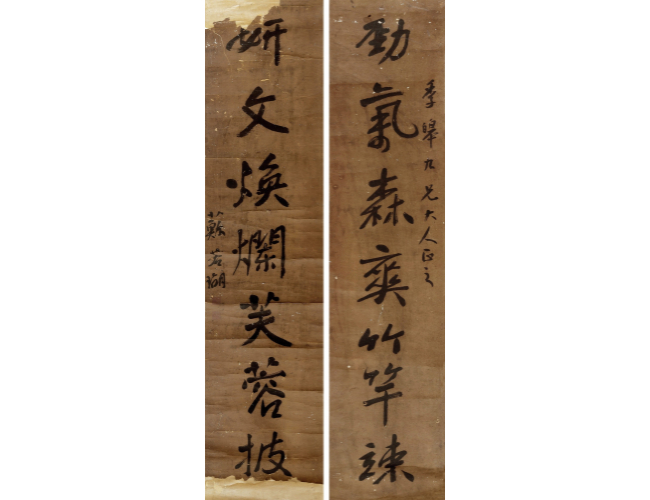 劲氣森爽竹竿竦
季皞九兄大人正之
妍文焕爛芙蓉披
蘇若瑚